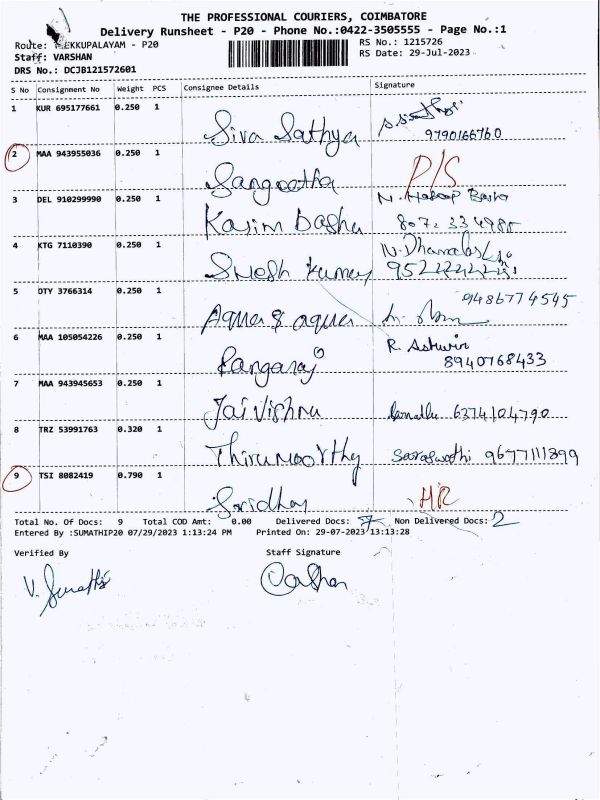 THE PROFESSIONAL COURIERS, COIMBATORE
Delivery Runsheet - P20 - Phone No.:0422-3505555 - Page No.:1
Route: EKKUPALAYAM - P20
RS No.: 1215726
Staff: VARSHAN
RS Date: 29-Jul-2023
DRS No.: DCJB121572601
S No Consignment No Weight PCS Consignee Details Signature
1 KUR 695177661 0.250 1
Siva Sathya
9790166760
2 MAA 943955036 0.250 1
Sangeetha P/S
3 DEL 910299990 0.250 1
Kasim Basha
4 KTG 7110390 0.250 1
Suresh Kumar
5 DTY 3766314 0.250 1
9486774545
Aqua & aqua
6 MAA 105054226 0.250 1
R. Ashwin
Rangaraj 8940768433
7 MAA 943945653 0.250 1
Jai Vishnu 6374104790
8 TRZ 53991763 0.320 1
Thirumoorthy Saraswathi 9677111399
9 TSI 8082419 0.790 1
Sridhar HR
Total No. Of Docs: 9 Total COD Amt: 0.00 Delivered Docs: 7 Non Delivered Docs: 2
Entered By :SUMATHIP20 07/29/2023 1:13:24 PM Printed On: 29-07-2023 13:13:28
Verified By Staff Signature
V. Sumathi